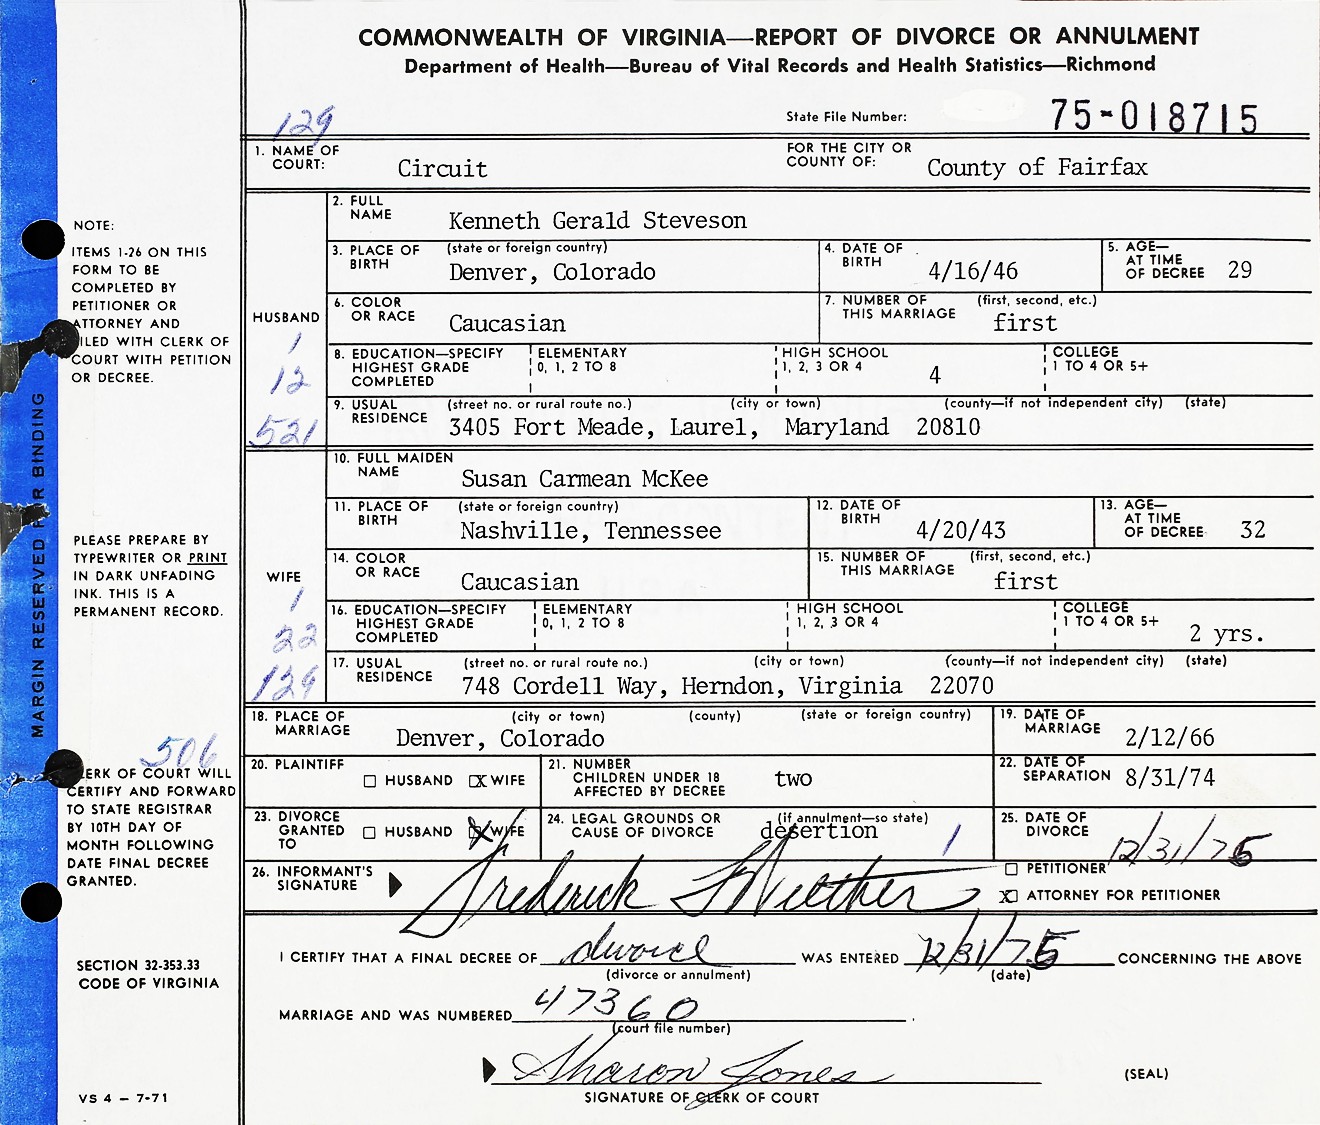 COMMONWEALTH OF VIRGINIA—REPORT OF DIVORCE OR ANNULMENT
Department of Health—Bureau of Vital Records and Health Statistics—Richmond
129
State File Number: 75-018715
1. NAME OF COURT: Circuit FOR THE CITY OR COUNTY OF: County of Fairfax
HUSBAND
1
12
521
2. FULL NAME Kenneth Gerald Steveson
3. PLACE OF BIRTH (state or foreign country) Denver, Colorado 4. DATE OF BIRTH 4/16/46 5. AGE— AT TIME OF DECREE 29
6. COLOR OR RACE Caucasian 7. NUMBER OF THIS MARRIAGE (first, second, etc.) first
8. EDUCATION—SPECIFY HIGHEST GRADE COMPLETED ELEMENTARY 0, 1, 2 TO 8 HIGH SCHOOL 1, 2, 3 OR 4 4 COLLEGE 1 TO 4 OR 5+
9. USUAL RESIDENCE (street no. or rural route no.) (city or town) (county—if not independent city) (state)
3405 Fort Meade, Laurel, Maryland 20810
WIFE
1
22
129
10. FULL MAIDEN NAME Susan Carmean McKee
11. PLACE OF BIRTH (state or foreign country) Nashville, Tennessee 12. DATE OF BIRTH 4/20/43 13. AGE— AT TIME OF DECREE 32
14. COLOR OR RACE Caucasian 15. NUMBER OF THIS MARRIAGE (first, second, etc.) first
16. EDUCATION—SPECIFY HIGHEST GRADE COMPLETED ELEMENTARY 0, 1, 2 TO 8 HIGH SCHOOL 1, 2, 3 OR 4 COLLEGE 1 TO 4 OR 5+ 2 yrs.
17. USUAL RESIDENCE (street no. or rural route no.) (city or town) (county—if not independent city) (state)
748 Cordell Way, Herndon, Virginia 22070
18. PLACE OF MARRIAGE (city or town) (county) (state or foreign country) Denver, Colorado 19. DATE OF MARRIAGE 2/12/66
20. PLAINTIFF HUSBAND X WIFE 21. NUMBER CHILDREN UNDER 18 AFFECTED BY DECREE two 22. DATE OF SEPARATION 8/31/74
23. DIVORCE GRANTED TO HUSBAND X WIFE 24. LEGAL GROUNDS OR CAUSE OF DIVORCE (if annulment—so state) desertion 1 25. DATE OF DIVORCE 12/31/75
26. INFORMANT'S SIGNATURE Frederick PETITIONER
X ATTORNEY FOR PETITIONER
I CERTIFY THAT A FINAL DECREE OF divorce WAS ENTERED 12/31/75 CONCERNING THE ABOVE
(divorce or annulment) (date)
MARRIAGE AND WAS NUMBERED 47360.
(court file number)
Sharon Jones (SEAL)
SIGNATURE OF CLERK OF COURT
NOTE:
ITEMS 1-26 ON THIS
FORM TO BE
COMPLETED BY
PETITIONER OR
ATTORNEY AND
FILED WITH CLERK OF
COURT WITH PETITION
OR DECREE.
PLEASE PREPARE BY
TYPEWRITER OR PRINT
IN DARK UNFADING
INK. THIS IS A
PERMANENT RECORD.
506
CLERK OF COURT WILL
CERTIFY AND FORWARD
TO STATE REGISTRAR
BY 10TH DAY OF
MONTH FOLLOWING
DATE FINAL DECREE
GRANTED.
SECTION 32-353.33
CODE OF VIRGINIA
VS 4 – 7-71
MARGIN RESERVED FOR BINDING